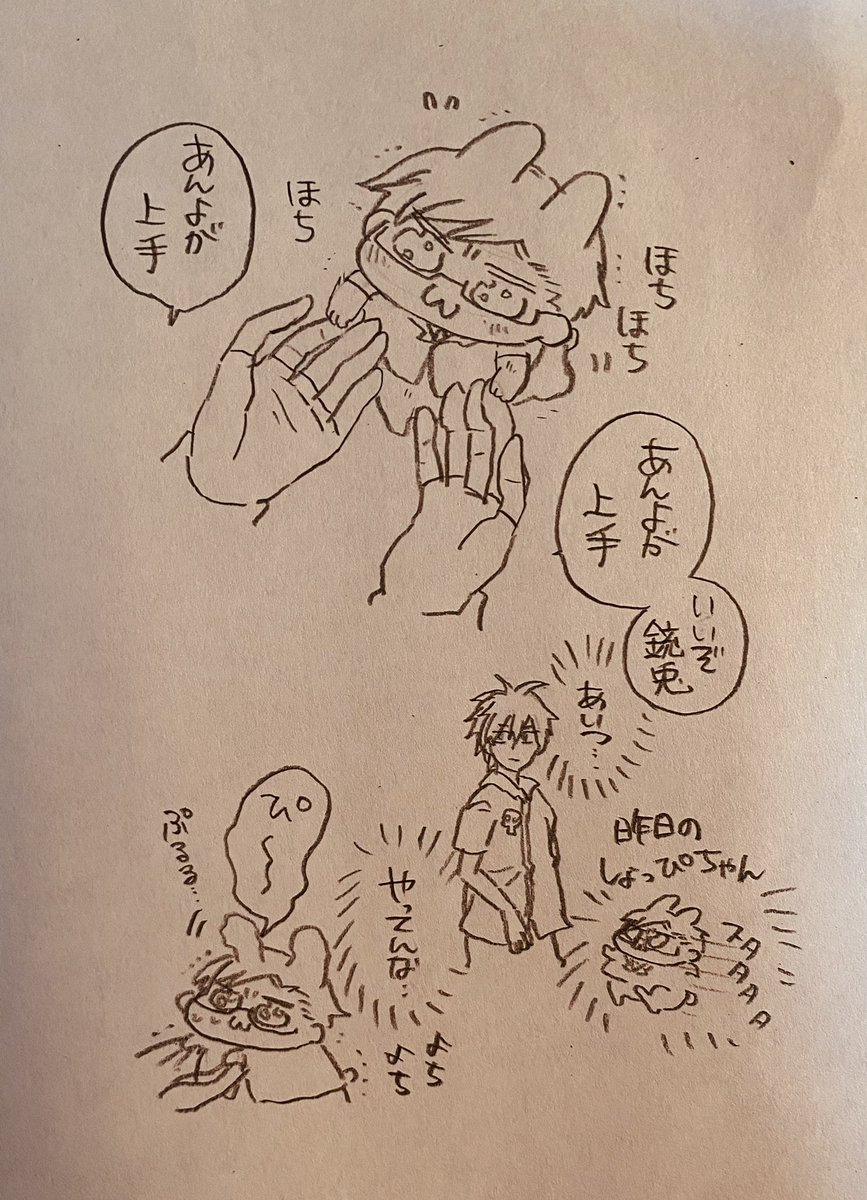 あんよが
上手
ほち
ほち
ほち
あんよが
上手
いいぞ
銃兎
あいつ…
やってんな…
昨日の
しょっぴちゃん
スタタタタ
ぴ〜
ぷるるる…
よち
よち